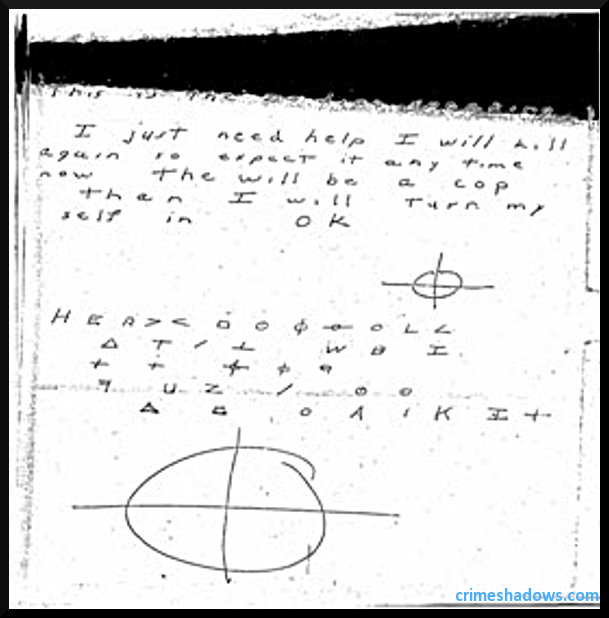 This is the
I just need help I will kill
again so expect it any time
now the will be a cop
then I will turn my
self in OK
H E A > < O O L <
Δ T / ⊥ W B I
+ +
U Z / O O
Δ O Λ I K I +
crimeshadows.com